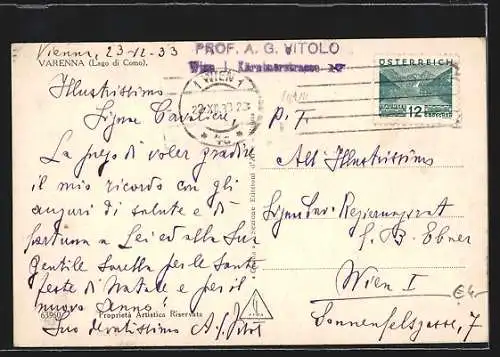 Vienna, 23-12-33
VARENNA (Lago di Como).
PROF. A. G. VITOLO
Wien I, Kärntnerstrasse
ÖSTERREICH
12
WIEN 1
Illustrissimo
Signor Cavaliere,
La prego di voler gradire
il mio ricordo con gli
auguri di salute e di
fortuna a Lei ed alla Sua
Gentile Sorella per le Sante
feste di Natale e per il
nuovo anno!
Suo devotissimo A. G. Vitolo
63960
Proprietà Artistica Riservata
P. T.
All' Illustrissimo
Signor Cav. Regierungsrat
G. B. Ebner
Wien I
Sonnenfelsgasse, 7